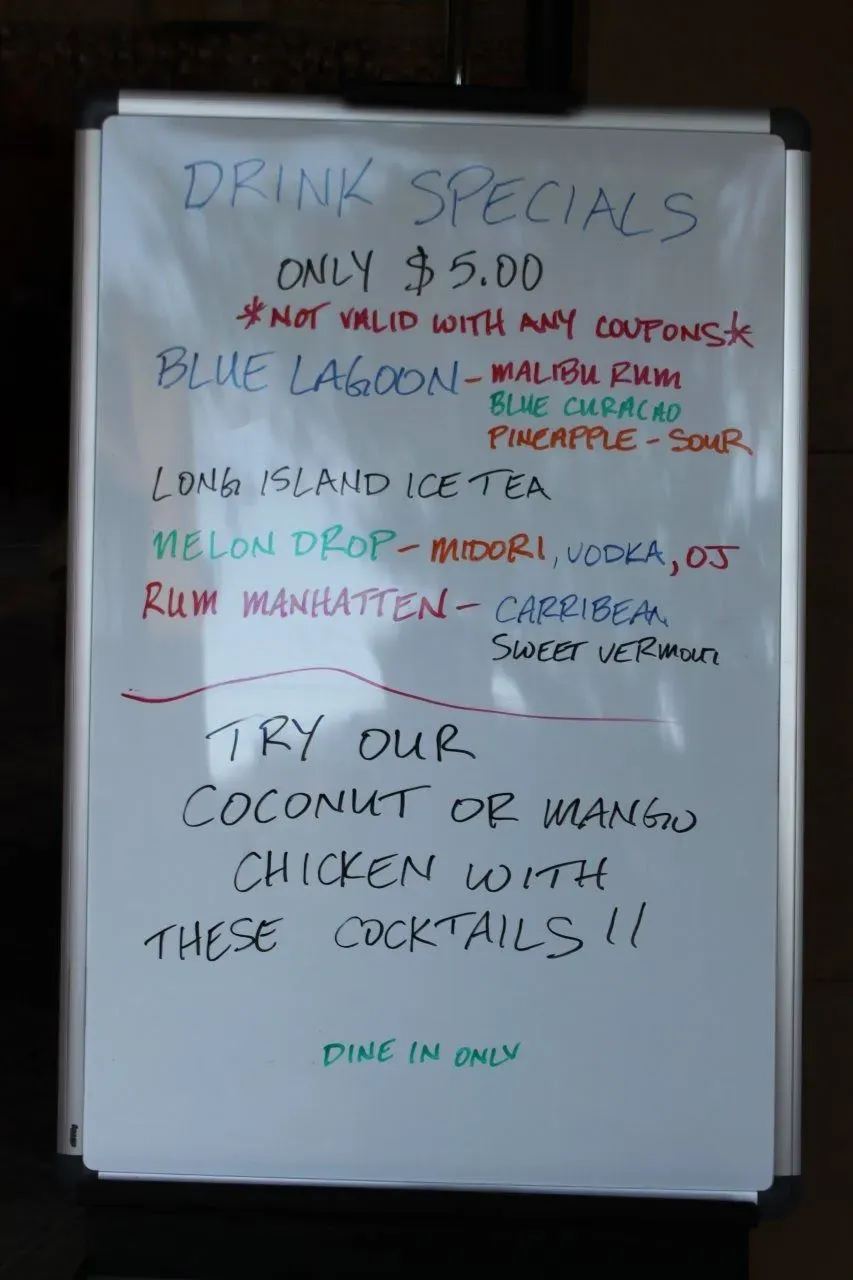 DRINK SPECIALS
ONLY $5.00
*NOT VALID WITH ANY COUPONS*
BLUE LAGOON - MALIBU RUM
BLUE CURACAO
PINEAPPLE - SOUR
LONG ISLAND ICE TEA
MELON DROP - MIDORI, VODKA, OJ
RUM MANHATTEN - CARRIBEAN
SWEET VERMOUT
TRY OUR
COCONUT OR MANGO
CHICKEN WITH
THESE COCKTAILS !!
DINE IN ONLY